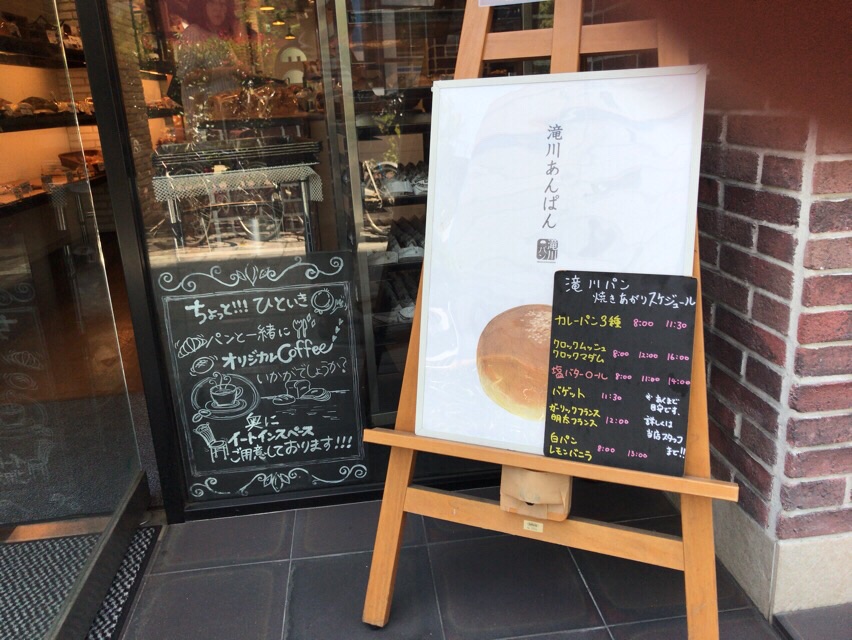 滝川あんぱん
滝川パン
焼きあがりスケジュール
カレーパン3種 8:00 11:30
クロックムッシュ
クロックマダム 8:00 12:00 16:00
塩バターロール 8:00 11:00 14:00
バゲット 11:30
ガーリックフランス
明太フランス 12:00
白パン
レモンバニラ 8:00 13:00
※あくまで
目安です。
詳しくは
お店スタッフ
まで!!
ちょっと!!! ひといき
パンと一緒に
オリジナルCoffee
いかがでしょうか?
奥に
イートインスペース
ご用意しております!!!